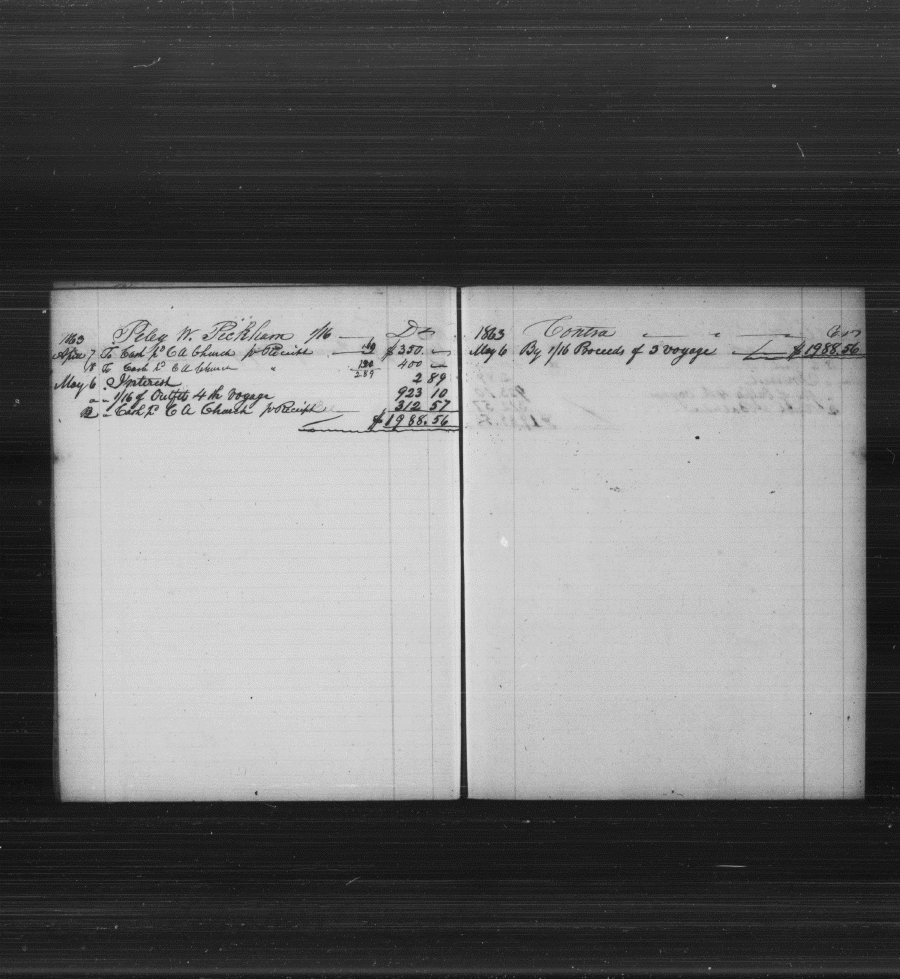 1863 Peleg W. Peckham 1/16 Dr
April 7 To Cash pr C A Church pr Receipt $350.
18 To Cash pr C A Church " 400
2.89
May 6 Interest 2 89
" " 1/16 of Outfits 4th Voyage 923 10
" Cash pr C A Church pr Receipt 312 57
$1988.56
1863 Contra " " Cr
May 6 By 1/16 Proceeds of 3 voyage $1988.56